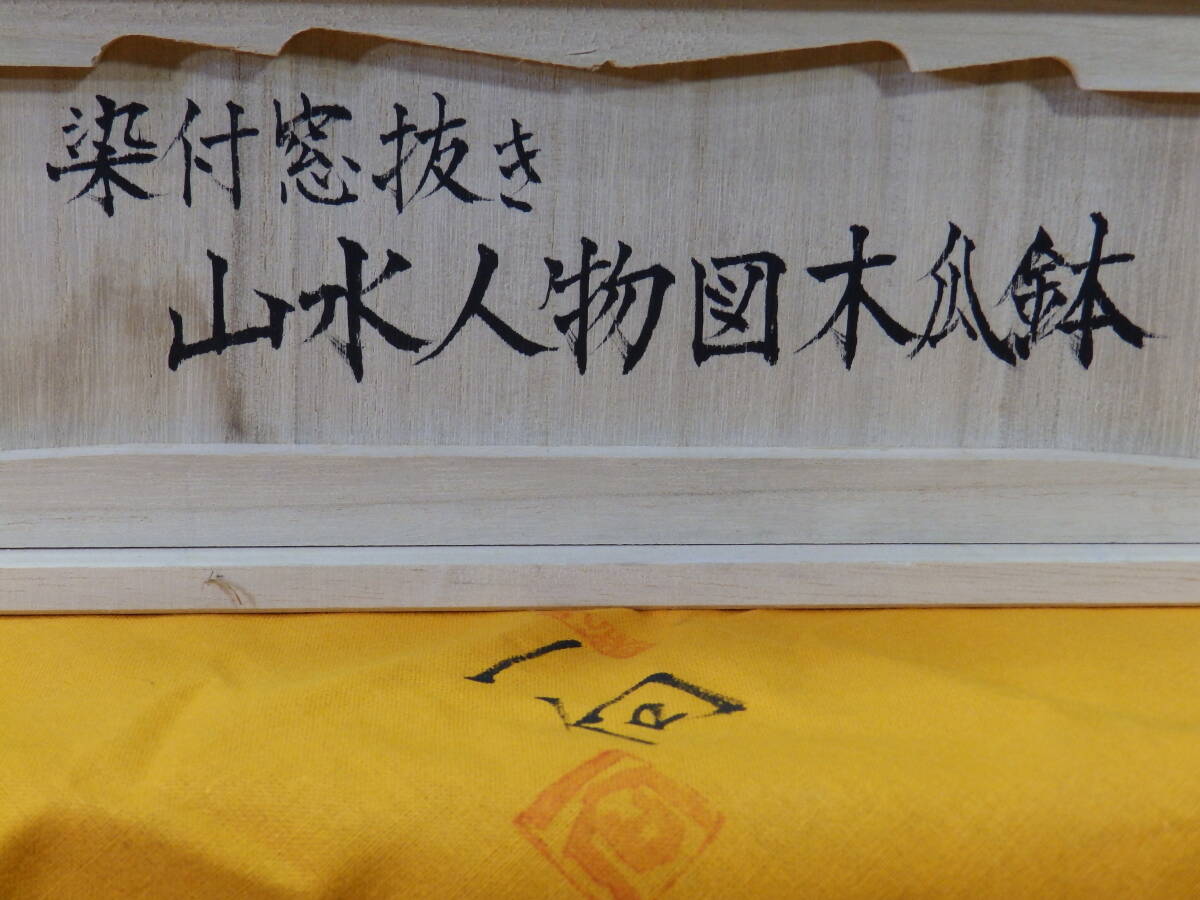 染付窓抜き
山水人物図木瓜鉢